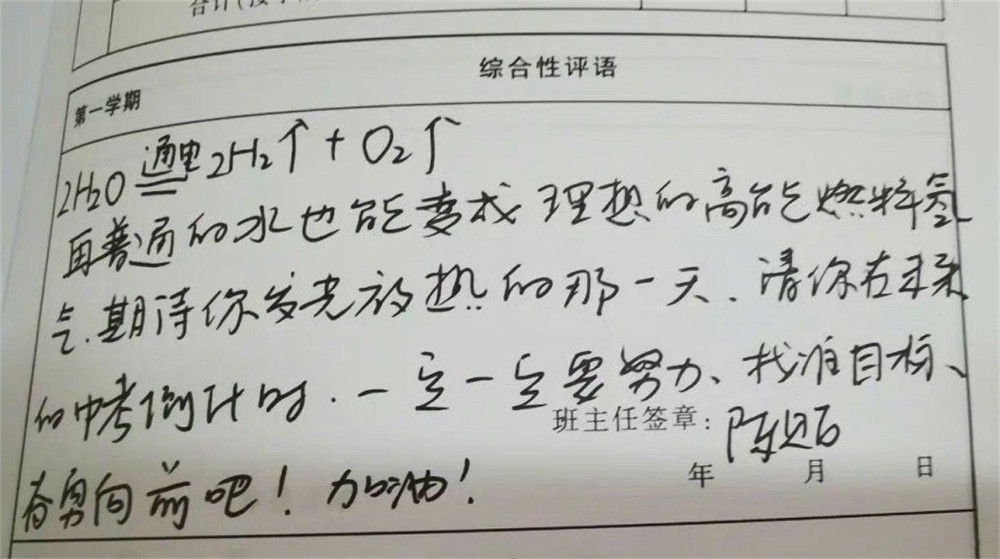 合计(按学
综合性评语
第一学期
2H2O 通电 2H2↑ + O2↑
再普通的水也能变成理想的高能燃料氢
气.期待你发光放热的那一天.请你在未来
的中考倒计时.一定一定要努力、找准目标、
班主任签章:陈
奋勇向前吧!加油!
年 月 日